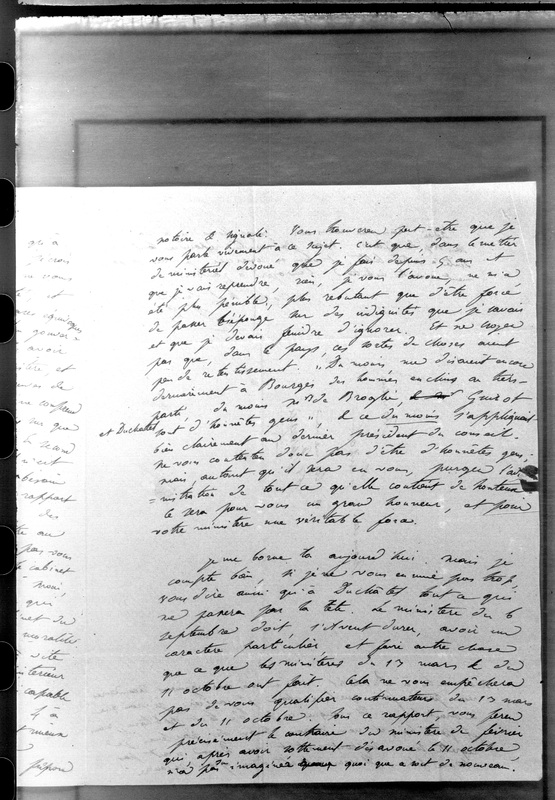 notoire et signalé. Vous trouverez peut-être que je
vous parle vivement à ce sujet. C'est que, dans le métier
de ministériel dévoué que je fais depuis 5 ans et
que je vais reprendre, rien, je vous l'avoue, ne m'a
été plus pénible, plus rebutant que d'être forcé
de passer l'éponge sur des indignités que je savais
et que je devais feindre d'ignorer. Et ne croyez
pas que, dans le pays, ces sortes de choses aient
peu de retentissement. "Du moins, me disaient encore
dernièrement à Bourges des hommes enclins au tiers-
parti, du moins Mrs de Broglie, Guizot
et Duchâtel
sont d'honnêtes gens", et ce du moins s'appliquait
bien clairement au dernier président du conseil.
Ne vous contentez donc pas d'être d'honnêtes gens;
mais, autant qu'il sera en vous, purgez l'ad-
=ministration de tout ce qu'elle contient de honteux
ce sera pour vous un grand honneur, et pour
votre ministère une véritable force.
Je me borne là aujourd'hui. Mais je
compte bien, si je ne vous ennuie pas trop,
vous dire ainsi qu'à Duchâtel tout ce qui
me passera par la tête. Le ministère du 6
septembre doit, s'il veut durer, avoir un
caractère particulier, et faire autre chose
que ce que les ministères du 13 mars et du
11 octobre ont fait. Cela ne vous empêchera
pas de vous qualifier continuateurs du 13 mars
et du 11 octobre. Sous ce rapport, vous ferez
précisément le contraire du ministère de février
qui, après avoir sottement désavoué le 11 octobre
n'a pas imaginé quoi que ce soit de nouveau.